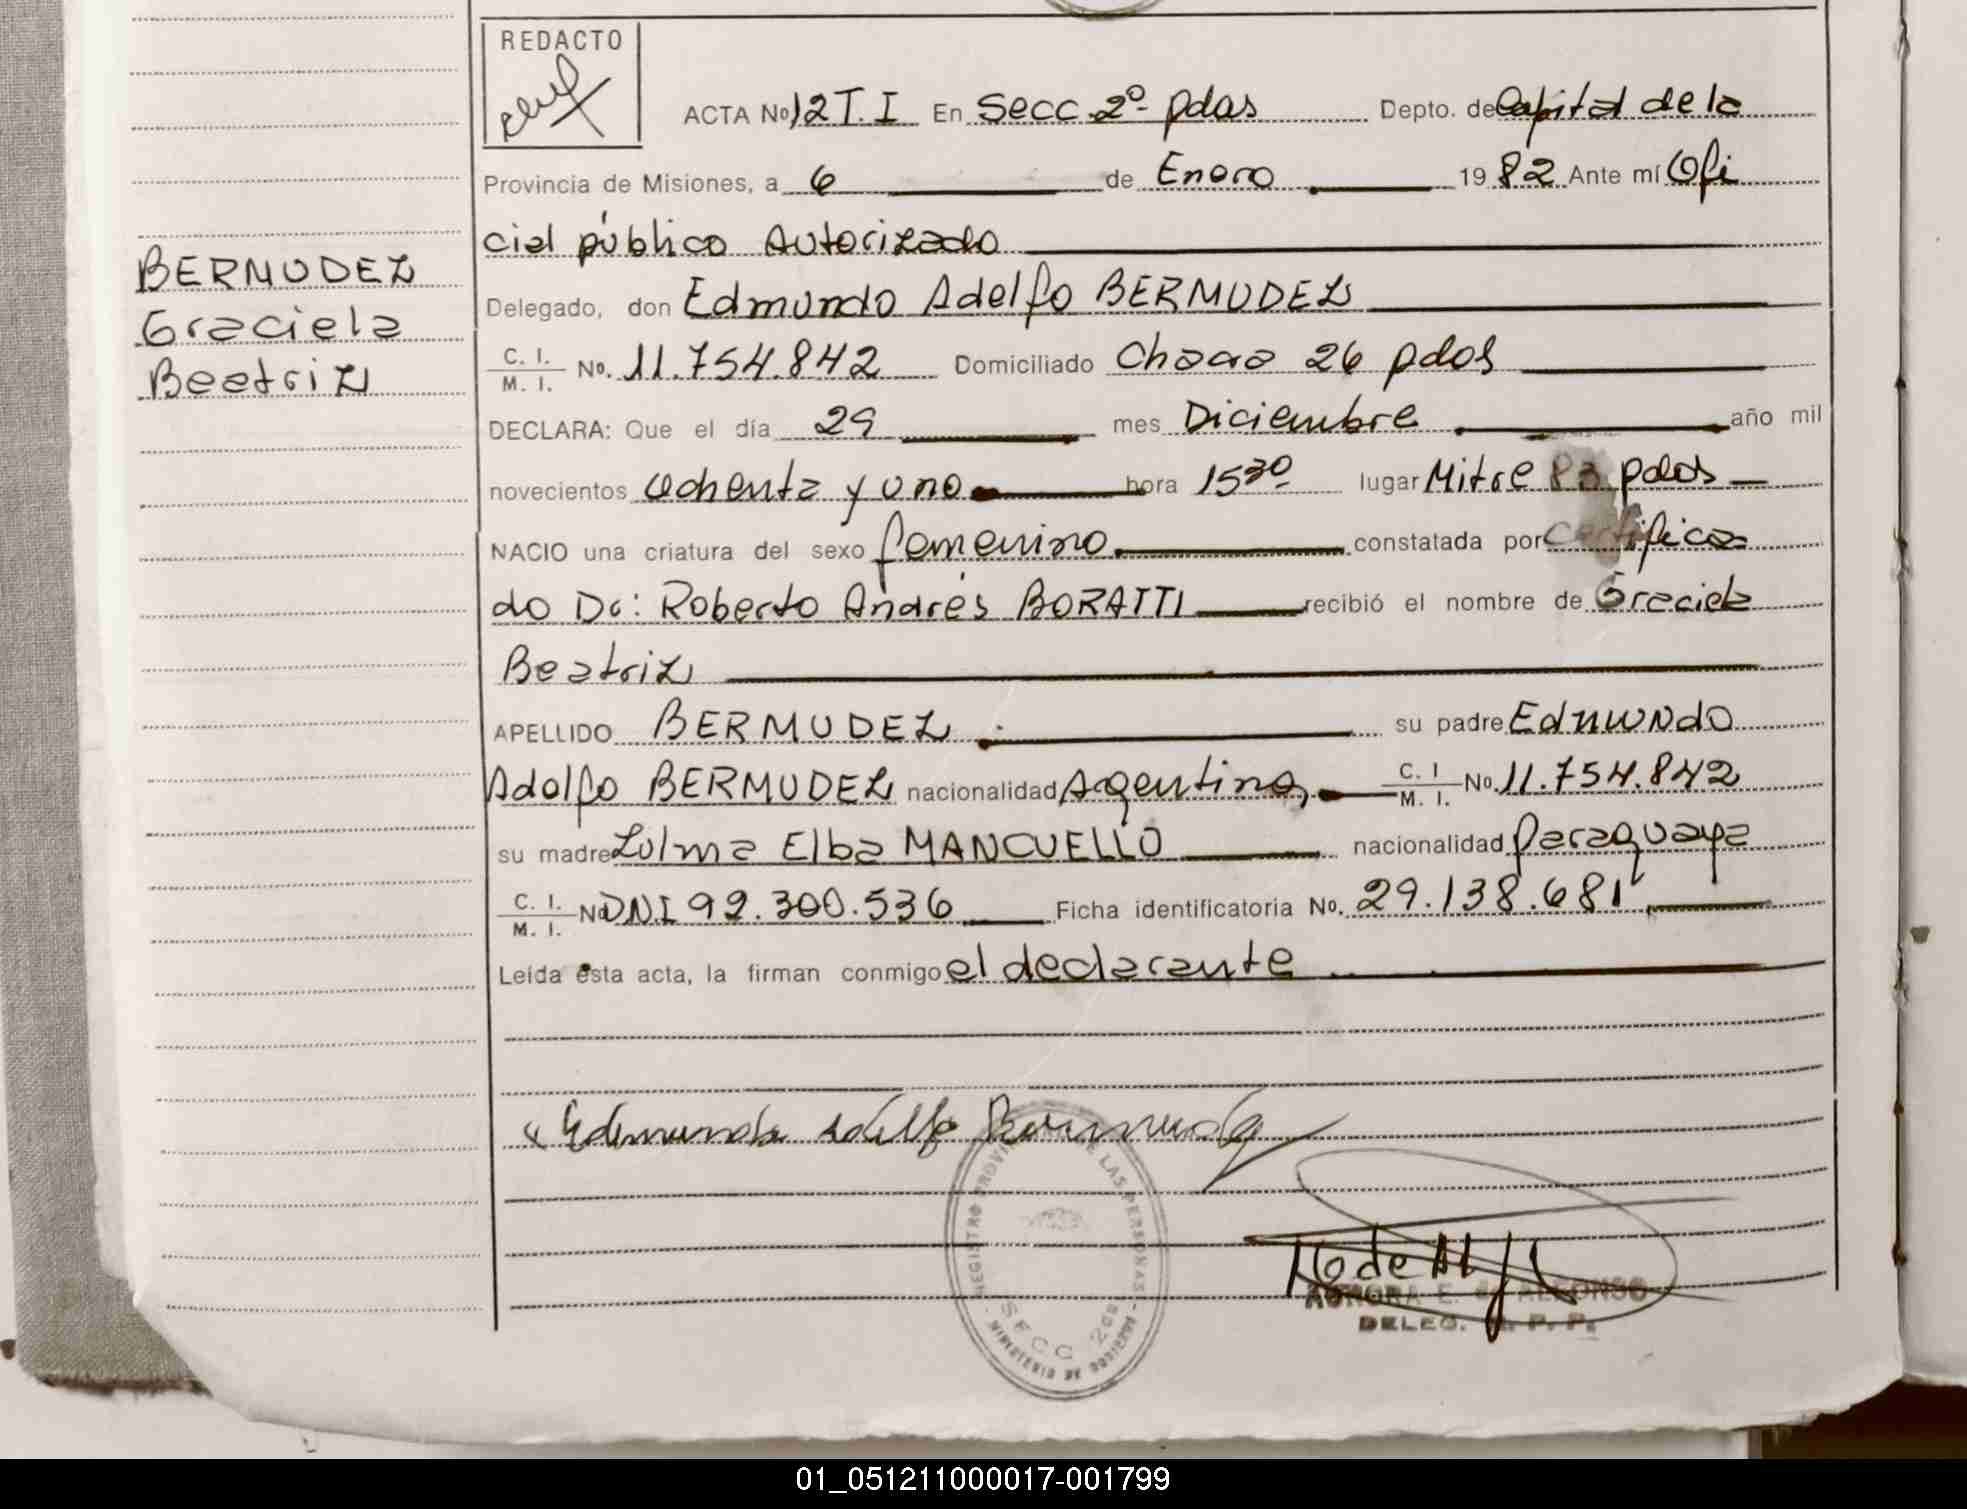 REDACTO
ACTA No 12 T. I En Secc. 2º pdas Depto. de Capital de la
Provincia de Misiones, a 6 de Enero 1982 Ante mí Ofi
cial público Autorizado
BERMUDEZ
Graciela
Beatriz
Delegado, don Edmundo Adolfo BERMUDEZ
C. I. M. I. No. 11.754.842 Domiciliado Chacra 26 pdas
DECLARA: Que el día 29 mes Diciembre año mil
novecientos ochenta y uno hora 15 30 lugar Mitre 83 pdas
NACIO una criatura del sexo femenino constatada por Certifica
do Dr: Roberto Andrés BORATTI recibió el nombre de Graciela
Beatriz
APELLIDO BERMUDEZ su padre Edmundo
Adolfo BERMUDEZ nacionalidad Argentino, C. I M. I. No. 11.754.842
su madre Zulma Elba MANCUELLO nacionalidad Paraguaya
C. I. M. I. No DNI 92.300.536 Ficha identificatoria No. 29.138.681
Leída esta acta, la firman conmigo el declarante
Edmundo Adolfo Bermudez
REGISTRO PROVINCIAL DE LAS PERSONAS
SECC 2da
MINISTERIO DE GOBIERNO
AURORA E. de ALFONSO
DELEG. R. P. P.
01_051211000017-001799